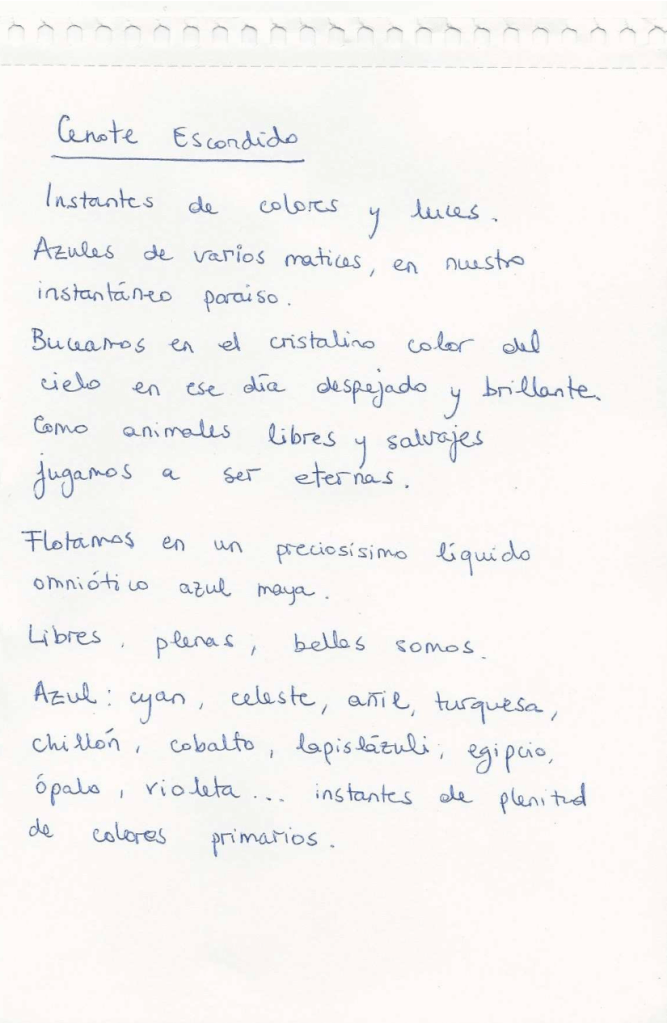 Cenote Escondido
Instantes de colores y luces.
Azules de varios matices, en nuestro
instantáneo paraiso.
Buceamos en el cristalino color del
cielo en ese día despejado y brillante.
Como animales libres y salvajes
jugamos a ser eternas.
Flotamos en un preciosísimo líquido
omniótico azul maya.
Libres, plenas, bellas somos.
Azul: cyan, celeste, añil, turquesa,
chillón, cobalto, lapislázuli, egipcio,
ópalo, violeta... instantes de plenitud
de colores primarios.